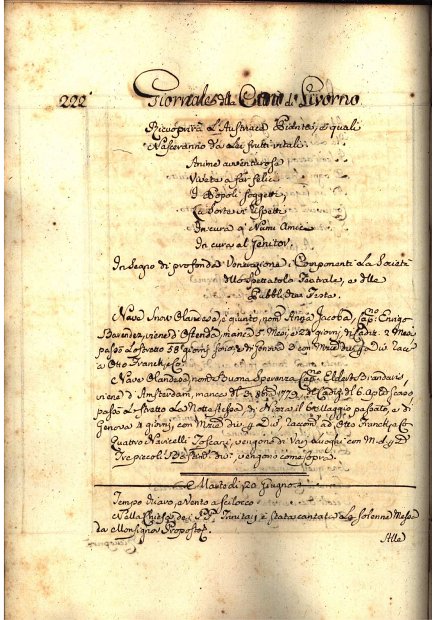 222 Giornale della Città di Livorno
Ricuoprirà L'Austriaca Pianta, e quali
Nasceranno da Lei frutti vitali.
Anime avventurose
Vivete a sor felici
I Popoli soggetti,
La sorte vi rispetti
In cura a' Numi Amici
In cura al Genitor.
In Segno di profonda Venerazione i Componenti La Società
dello Spettacolo Teatrale, e della
Pubblica Festa.
Nave Snow Olandese, è giunto, nom. Anna Jacoba, Cap.no Enrigo
Barender, viene d'Ostenda, manca 5 Mesi, e 22 giorni, di 2 Mesi
passò Lo stretto 58 giorni sono, e di Genova 8 con Merc. div.
a Otto Franck, e C.
Nave Olandese, nom. Buona Speranza Cap.no Elders Brandaris,
viene d'Amsterdam, manca dì 8bre 1779, di Cadig. dì 6 Aple scorso
passò Lo stretto La Notte stessa, di Nizza il 6 Maggio passato, e di
Genova 4 giorni, con Merc. div. racc. ad Otto Franck, e C.
Quattro Navicelli Toscani, vengono di Varj Luoghi con M.
Tre piccoli vengono come sopra.
Martedì 20 Giugno
Tempo Vario, e Vento a Scilocco
Nella Chiesa de' PP. Trinitarj è stata cantata La solenne Messa
da Monsignor Proposto.
Alla